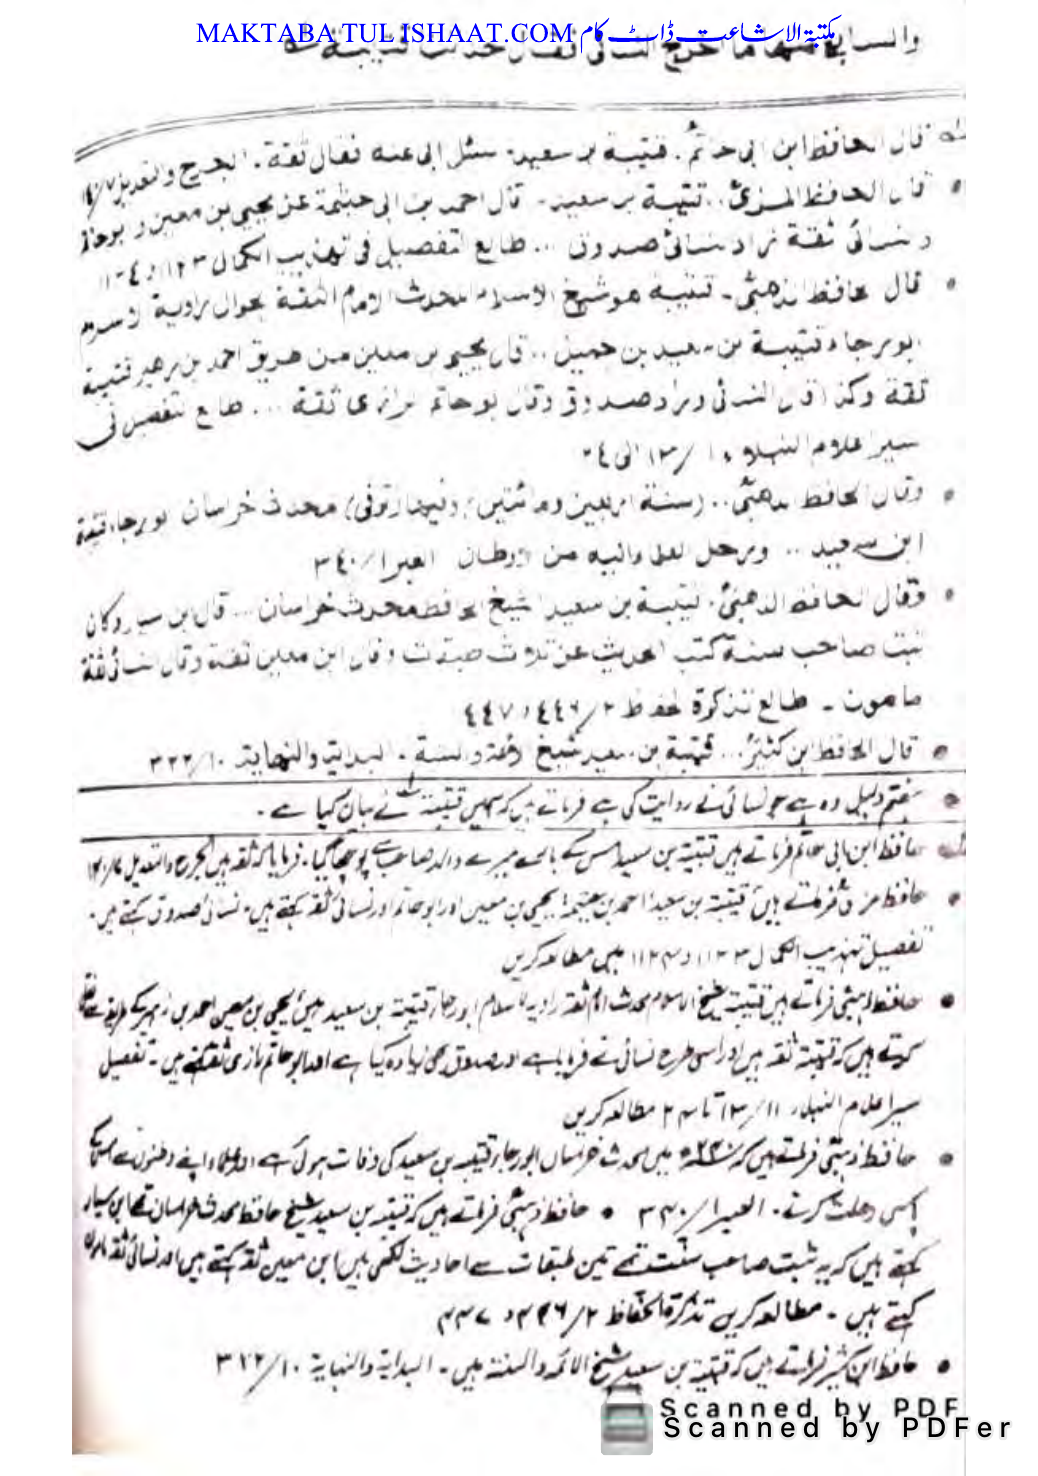 MAKTABA TUL ISHAAT.COM مکتبۃ الاشاعت ڈاٹ کام
والسابع منها ما اخرج النسائی فقال حدثنا قتیبة
قال الحافظ ابن ابی حاتم. قتیبة بن سعید. سئل ابی عنه فقال ثقة. الجرح والتعدیل
قال الحافظ المزی.. قتیبة بن سعید. قال احمد بن ابی خیثمة عن یحیی بن معین و ابو حاتم
و نسائی ثقة زاد نسائی صدوق ... طالع التفصیل فی تهذیب الکمال
قال حافظ الذهبی. قتیبة هو شیخ الاسلام المحدث الامام الثقة الجوال راویة الاسلام
ابو رجاء قتیبة بن سعید بن جمیل .. قال یحیی بن معین من طریق احمد بن زهیر قتیبة
ثقة وکذا قال النسائی وزاد صدوق وقال ابو حاتم رازی ثقة ... طالع تفصیل فی
سیر اعلام النبلاء ١١/١٣ الی ٢٤
وقال الحافظ ذهبی.. (سنة اربعین ومائتین) وفیها توفی) محدث خراسان ابو رجاء قتیبة
ابن سعید .. ورحل العلماء الیه من الاوطان العبر ١/٣٤٠
وقال الحافظ الذهبی. قتیبة بن سعید الشیخ الحافظ محدث خراسان... قال ابن سیار وکان
ثبت صاحب سنة کتب الحدیث عن ثلاث طبقات وقال ابن معین ثقة وقال نسائی ثقة
مامون ۔ طالع تذکرة الحفاظ ٢/٤٤٦، ٤٤٧
قال الحافظ ابن کثیر... قتیبة بن سعید شیخ الائمة والسنة. البدایة والنهایة ١٠/٣٢٢
ہفتم دلیل وہ ہے جو نسائی نے روایت کی ہے فرماتے ہیں کہ ہمیں قتیبۃ نے بیان کیا ہے ۔
حافظ ابن ابی حاتم فرماتے ہیں قتیبۃ بن سعید اس کے بارے میرے والد صاحب سے پوچھا گیا۔ فرمایا کہ ثقہ ہیں الجرح والتعدیل
حافظ مزی فرماتے ہیں قتیبۃ بن سعید احمد بن خیثمۃ یحیی بن معین اور ابو حاتم اور نسائی ثقہ کہتے ہیں۔ نسائی صدوق کہتے ہیں۔
تفصیل تہذیب الکمال میں مطالعہ کریں
حافظ ذہبی فرماتے ہیں قتیبۃ شیخ الاسلام محدث امام ثقہ راویہ الاسلام ابو رجاء قتیبۃ بن سعید ہیں یحیی بن معین احمد بن زہیر کے طریقے سے نقل
کرتے ہیں کہ قتیبۃ ثقہ ہیں اور اسی طرح نسائی نے فرمایا ہے اور صدوق بھی زیادہ کیا ہے اور ابو حاتم رازی ثقہ کہتے ہیں ۔ تفصیل
سیر اعلام النبلاء ۱۱/۱۳ تا ۲۴ مطالعہ کریں
حافظ ذہبی فرماتے ہیں کہ ۲۴۰ھ میں محدث خراسان ابو رجاء قتیبہ بن سعید کی وفات ہوئی ہے اور علماء اپنے وطنوں سے اس کے
پاس رحلت کرتے۔ العبر ۱/۳۴۰ • حافظ ذہبی فرماتے ہیں کہ قتیبہ بن سعید شیخ حافظ محدث خراسان تھے ابن سیار
کہتے ہیں کہ یہ ثبت صاحب سنت تھے تین طبقات سے احادیث لکھی ہیں ابن معین ثقہ کہتے ہیں اور نسائی ثقہ مامون
کہتے ہیں ۔ مطالعہ کریں تذکرۃ الحفاظ ۲/۴۴۶، ۴۴۷
حافظ ابن کثیر فرماتے ہیں کہ قتیبۃ بن سعید شیخ الائمہ والسنۃ ہیں ۔ البدایۃ والنہایۃ ۱۰/۳۲۲
Scanned by PDF
Scanned by PDFer